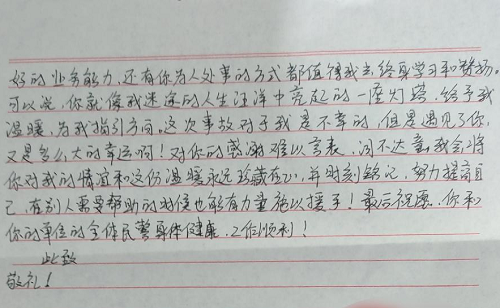 好的业务能力,还有你为人处事的方式都值得我去终身学习和赞扬。
可以说,你就像我迷途的人生汪洋中亮起的一座灯塔,给予我
温暖,为我指引方向。这次事故对于我是不幸的,但是遇见了你,
又是多么大的幸运啊!对你的感谢难以言表,词不达意,我会将
你对我的情谊和这份温暖永远珍藏在心,并时刻铭记,努力提高自
己,在别人需要帮助的时候也能有力量施以援手!最后祝愿,你和
你的单位的全体民警身体健康,工作顺利!
此致
敬礼!